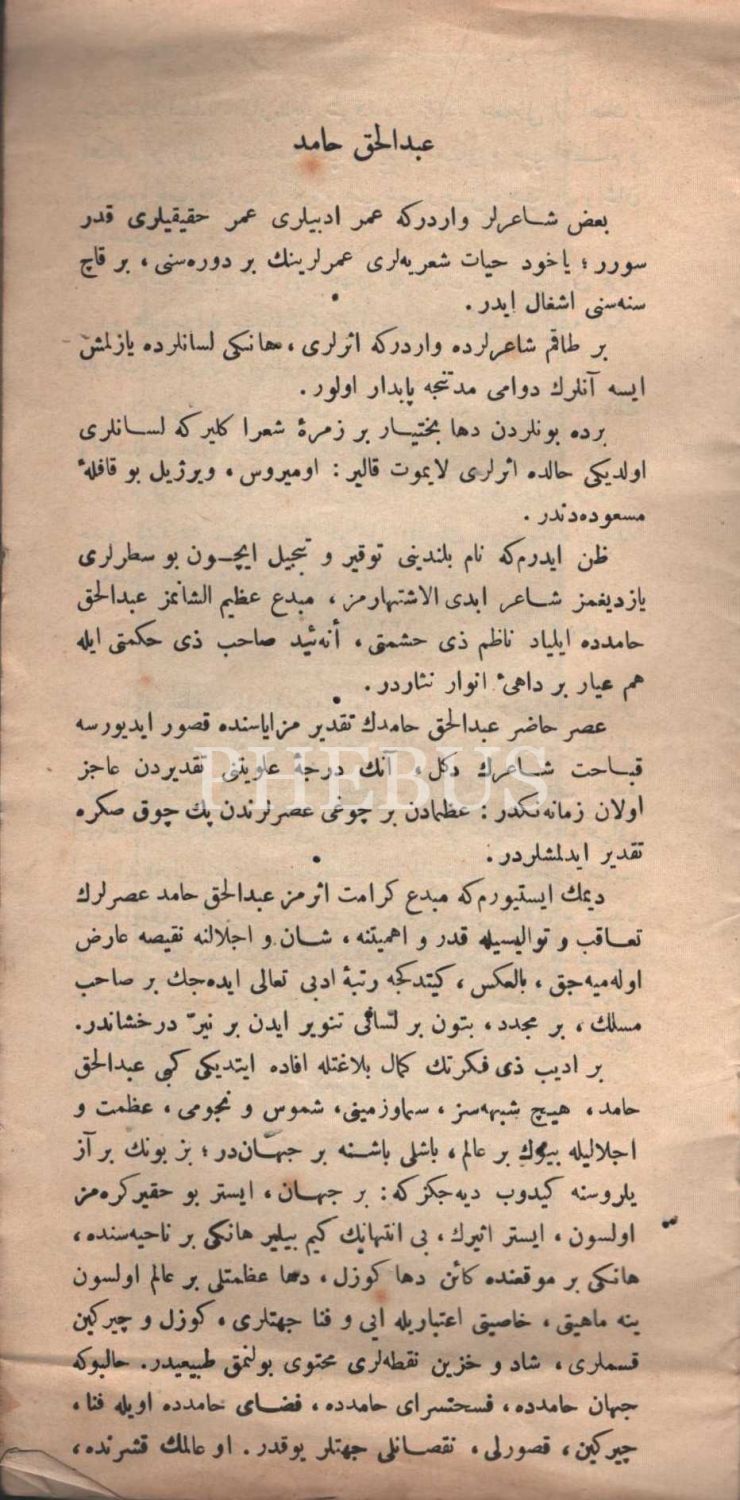 عبدالحق حامد
بعض شاعرلر واردركه عمر ادبيلری عمر حقيقيلری قدر
سورر ؛ ياخود حيات شعريه‌لری عمرلرينك بر دوره‌سنی ، بر قاچ
سنه‌سنی اشغال ايدر .
بر طاقم شاعرلرده واردركه اثرلری ، هانكی لسانلرده يازلمش
ايسه آنلرك دوامی مدتنجه پايدار اولور .
برده بونلردن دها بختيار بر زمرۀ شعرا كليركه لسانلری
اولديكی حالده اثرلری لايموت قالير : اوميروس ، ويرژيل بو قافلهٔ
مسعوده‌دندر .
ظن ايدرم‌كه نام بلندينی توقير و تبجيل ايچون بو سطرلری
يازديغمز شاعر ابدی الاشتهارمز ، مبدع عظيم الشانمز عبدالحق
حامدده ايلياد ناظم ذی حشمتی ، أنه‌ئيد صاحب ذی حكمتی ايله
هم عيار بر داهیٔ انوار نثاردر .
عصر حاضر عبدالحق حامدك تقدير مزاياسنده قصور ايديورسه
قباحت شاعرك دكل ، آنك درجۀ علويتنی تقديردن عاجز
اولان زمانه‌نكدر : عظمادن بر چوغی عصرلرندن پك چوق صكره
تقدير ايدلمشلردر .
ديمك ايستيورم‌كه مبدع كرامت اثرمز عبدالحق حامد عصرلرك
تعاقب و تواليسيله قدر و اهميتنه ، شان و اجلالنه نقيصه عارض
اوله‌ميه‌جق ، بالعكس ، كيتدكجه رتبۀ ادبی تعالی ايده‌جك بر صاحب
مسلك ، بر مجدد ، بتون بر لسانی تنوير ايدن بر نيرّ درخشاندر.
بر اديب ذی فكرتك كمال بلاغتله افاده ايتديكی كبی عبدالحق
حامد ، هيچ شبهه‌سز ، سماوزمينی ، شموس و نجومی ، عظمت و
اجلاليله بيوك بر عالم ، باشلی باشنه بر جهان‌در ؛ بز بونك بر آز
يلروسنه كيدوب ديه‌جكزكه : بر جهان ، ايستر بو حقير كره‌مز
اولسون ، ايستر اثيرك ، بی انتهانك كيم بيلير هانكی بر ناحيه‌سنده ،
هانكی بر موقعنده كائن دها كوزل ، دها عظمتلی بر عالم اولسون
ينه ماهيتی ، خاصيتی اعتباريله ايی و فنا جهتلری ، كوزل و چيركين
قسملری ، شاد و حزين نقطه‌لری محتوی بولنمق طبيعيدر. حالبوكه
جهان حامدده ، فسحتسرای حامدده ، فضای حامدده اويله فنا ،
چيركين ، قصورلی ، نقصانلی جهتلر يوقدر . او عالمك قشرنده ،
PHEBUS